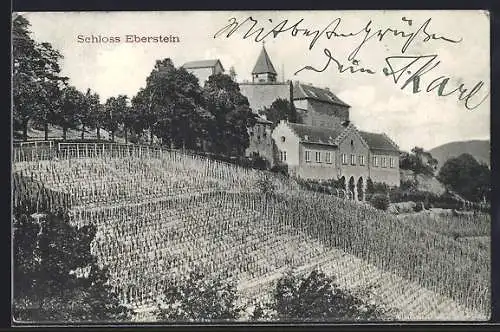 Schloss Eberstein
Mit besten Grüßen
dein Karl